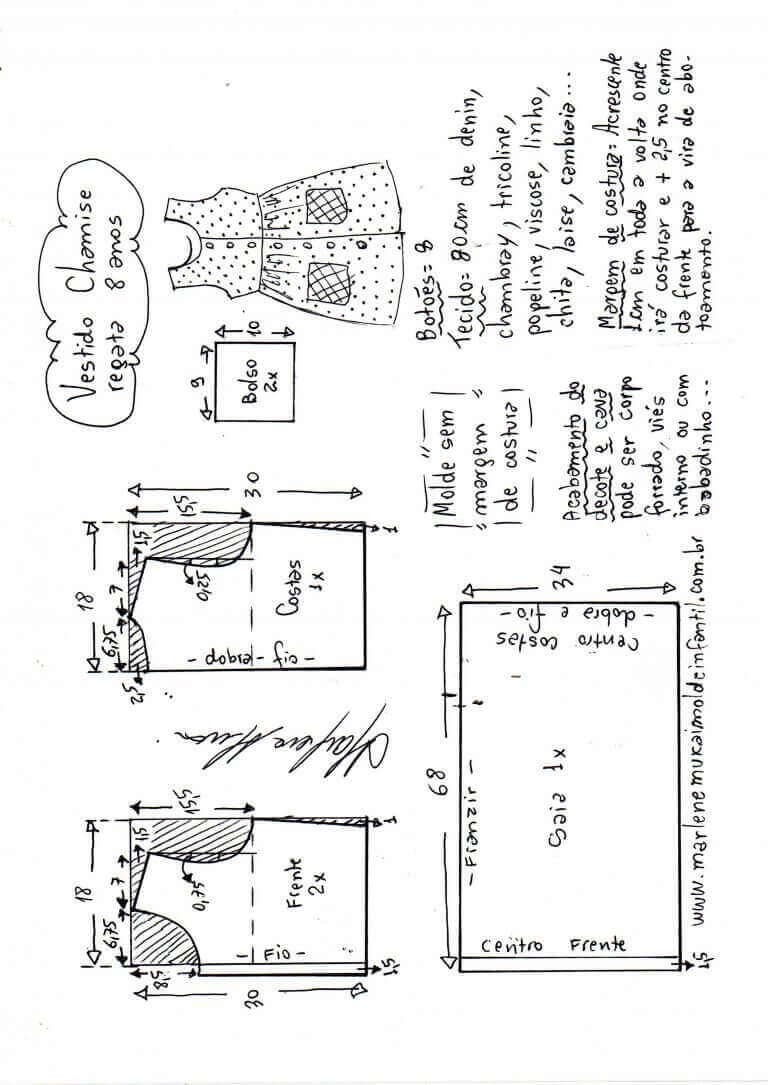 Vestido Chamise
regata 8 anos
9
10
Bolso
2x
Botões = 8
Tecido = 80cm de denin,
chambray, tricoline,
popeline, viscose, linho,
chita, laise, cambraia...
Margem de costura = Acrescente
1cm em toda a volta onde
irá costurar e + 2,5 no centro
da frente para a vira de abo-
toamento.
Molde sem
margem
de costura
Acabamento do
decote e cava
pode ser corpo
forrado, viés
interno ou com
babadinho...
18
6,75
7
1,5
15,5
30
2,5
0,25
Costas
1x
- dobra - fio -
1
18
6,75
7
1,5
15,5
8,5
30
0,75
Frente
2x
- Fio -
1,5
1
68
34
- Franzir -
Saia 1x
Centro Frente
Centro costas
- dobra e fio -
1,5
www.marlenemukaimoldeinfantil.com.br